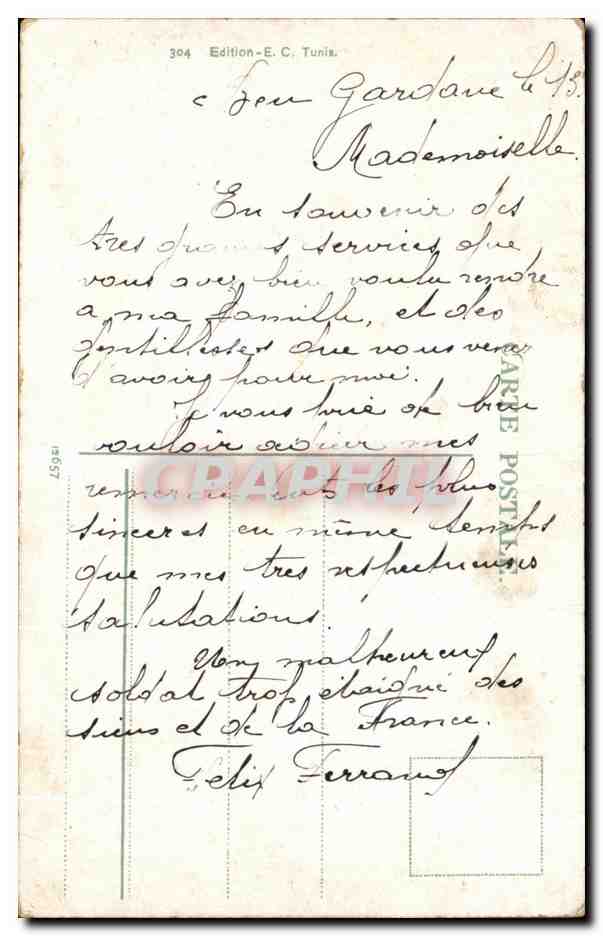 304 Edition - E. C. Tunis.
Ben Gardane le 13.
Mademoiselle.
En souvenir des
tres grands services que
vous avez bien voulu rendre
a ma famille, et des
gentillesses que vous venez
d'avoir pour moi.
Je vous prie de bien
vouloir mes
remerciements les plus
sinceres en même temps
que mes tres respectueuses
salutations.
Un malheureux
soldat trop éloigné des
siens et de la France.
Felix Ferrand
CARTE POSTALE.
12657
CPAPHIL